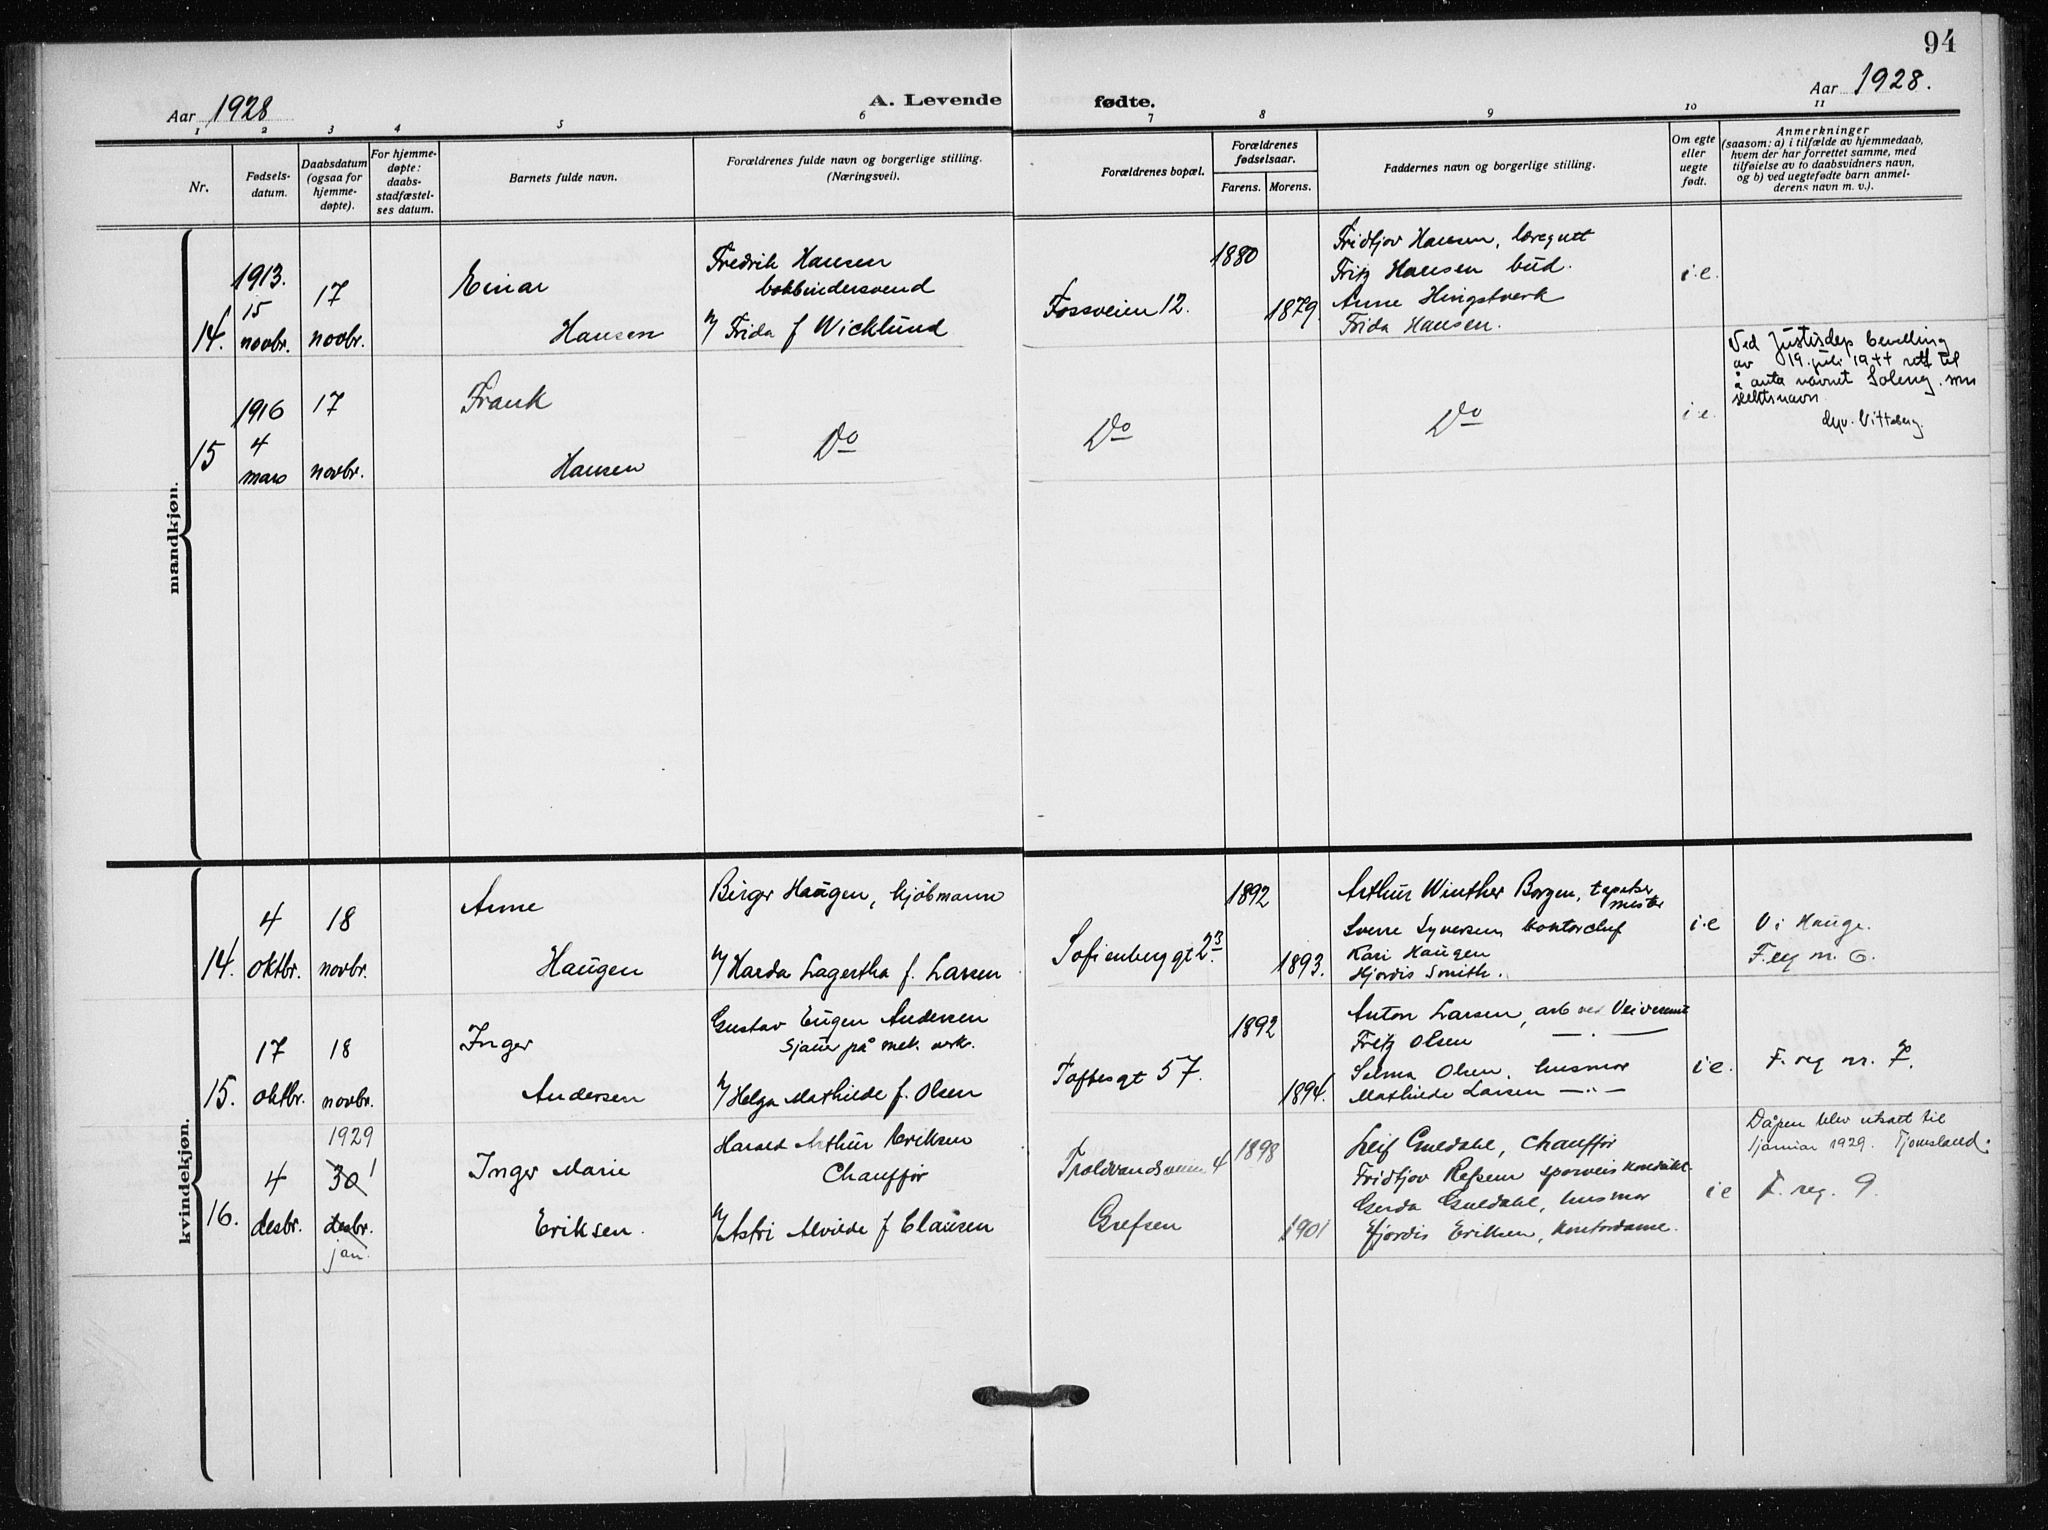 94
Aar 1928
A. Levende fødte.
Aar 1928.
1 2 3 4 5 6 7 8 9 10 11
Nr.
Fødsels-
datum.
Daabsdatum
(ogsaa for
hjemme-
døpte).
For hjemme-
døpte:
daabs-
stadfæstel-
ses datum.
Barnets fulde navn.
Forældrenes fulde navn og borgerlige stilling.
(Næringsvei).
Forældrenes bopæl.
Forældrenes
fødselsaar.
Farens. Morens.
Faddernes navn og borgerlige stilling.
Om egte
eller
uegte
født.
Anmerkninger
(saasom: a) i tilfælde av hjemmedaab,
hvem der har forrettet samme, med
tilføielse av to daabsvidners navn,
og b) ved uegtefødte barn anmel-
derens navn m. v.).
mandkjøn.
14.
1913.
15
novbr.
17
novbr.
Einar
Hansen
Fredrik Hansen
bokbindersvend
Frida f Wicklund
Fossveien 12.
1880
1879.
Fridtjov Hansen, læregutt
Fritz Hansen bud.
Anne Hingstverk
Frida Hansen.
i.e.
15
1916
4
mars
17
novbr.
Frank
Hansen
Do
Do
Do
i.e.
Ved Justisdep bevilling
av 19. juli 1944 rett til
å anta navnet Soleng som
slektsnavn.
kvindekjøn.
14.
4
oktbr.
18
novbr.
Anne
Haugen
Birger Haugen, kjøbmann
Harda Lagertha f. Larsen
Sofienberggt 23.
1892
1893.
Arthur Winther Borgen, tapetser
mester
Sverre Syversen kontorchef
Kari Haugen
Hjordis Smith.
i.e
V i Hauge.
F.reg nr. 6.
15.
17
oktbr.
18
novbr.
Inger
Andersen
Gustav Eugen Andersen
Sjauer på mek. verk.
Helga Mathilde f. Olsen
Toftesgt 57.
1892
1894.
Anton Larsen, arb ved Veivesenet
Fritz Olsen — . —
Selma Olsen, husmor
Mathilde Larsen — " —
i e.
F. reg nr. 7.
16.
4
desbr.
1929
30 1
desbr.
jan.
Inger Marie
Eriksen.
Harald Arthur Eriksen
Chauffør
Astri Alvilde f Clausen
Troldvandsveien 4
Grefsen
1898
1901
Leif Guldahl, Chauffør
Fridtjov Refsem sporveiskonduktør
Gerda Guldahl, husmor
Hjørdis Eriksen, kontordame.
i e
Dåpen blev utsatt til
1 januar 1929. Tjomsland.
F. reg. 9.